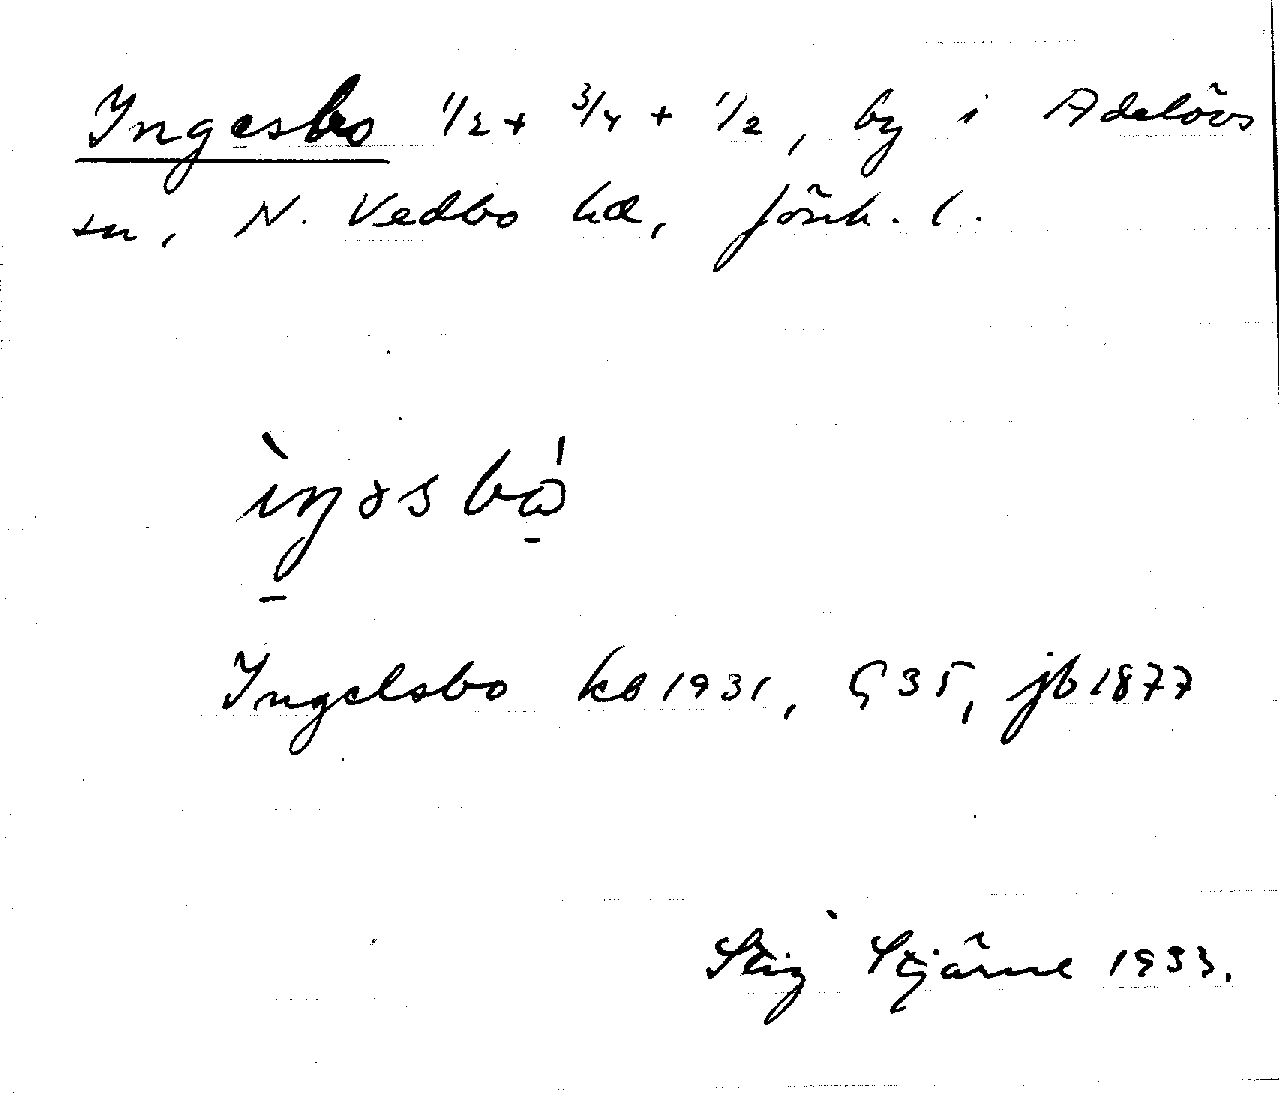 Ingesbo 1/2 + 3/4 + 1/2, by i Adelövs
sn, N. Vedbo hd, Jönk. l.
ìŋəsbó
Ingelsbo kb 1931, G 35, jb 1877
Stig Stjärne 1933.